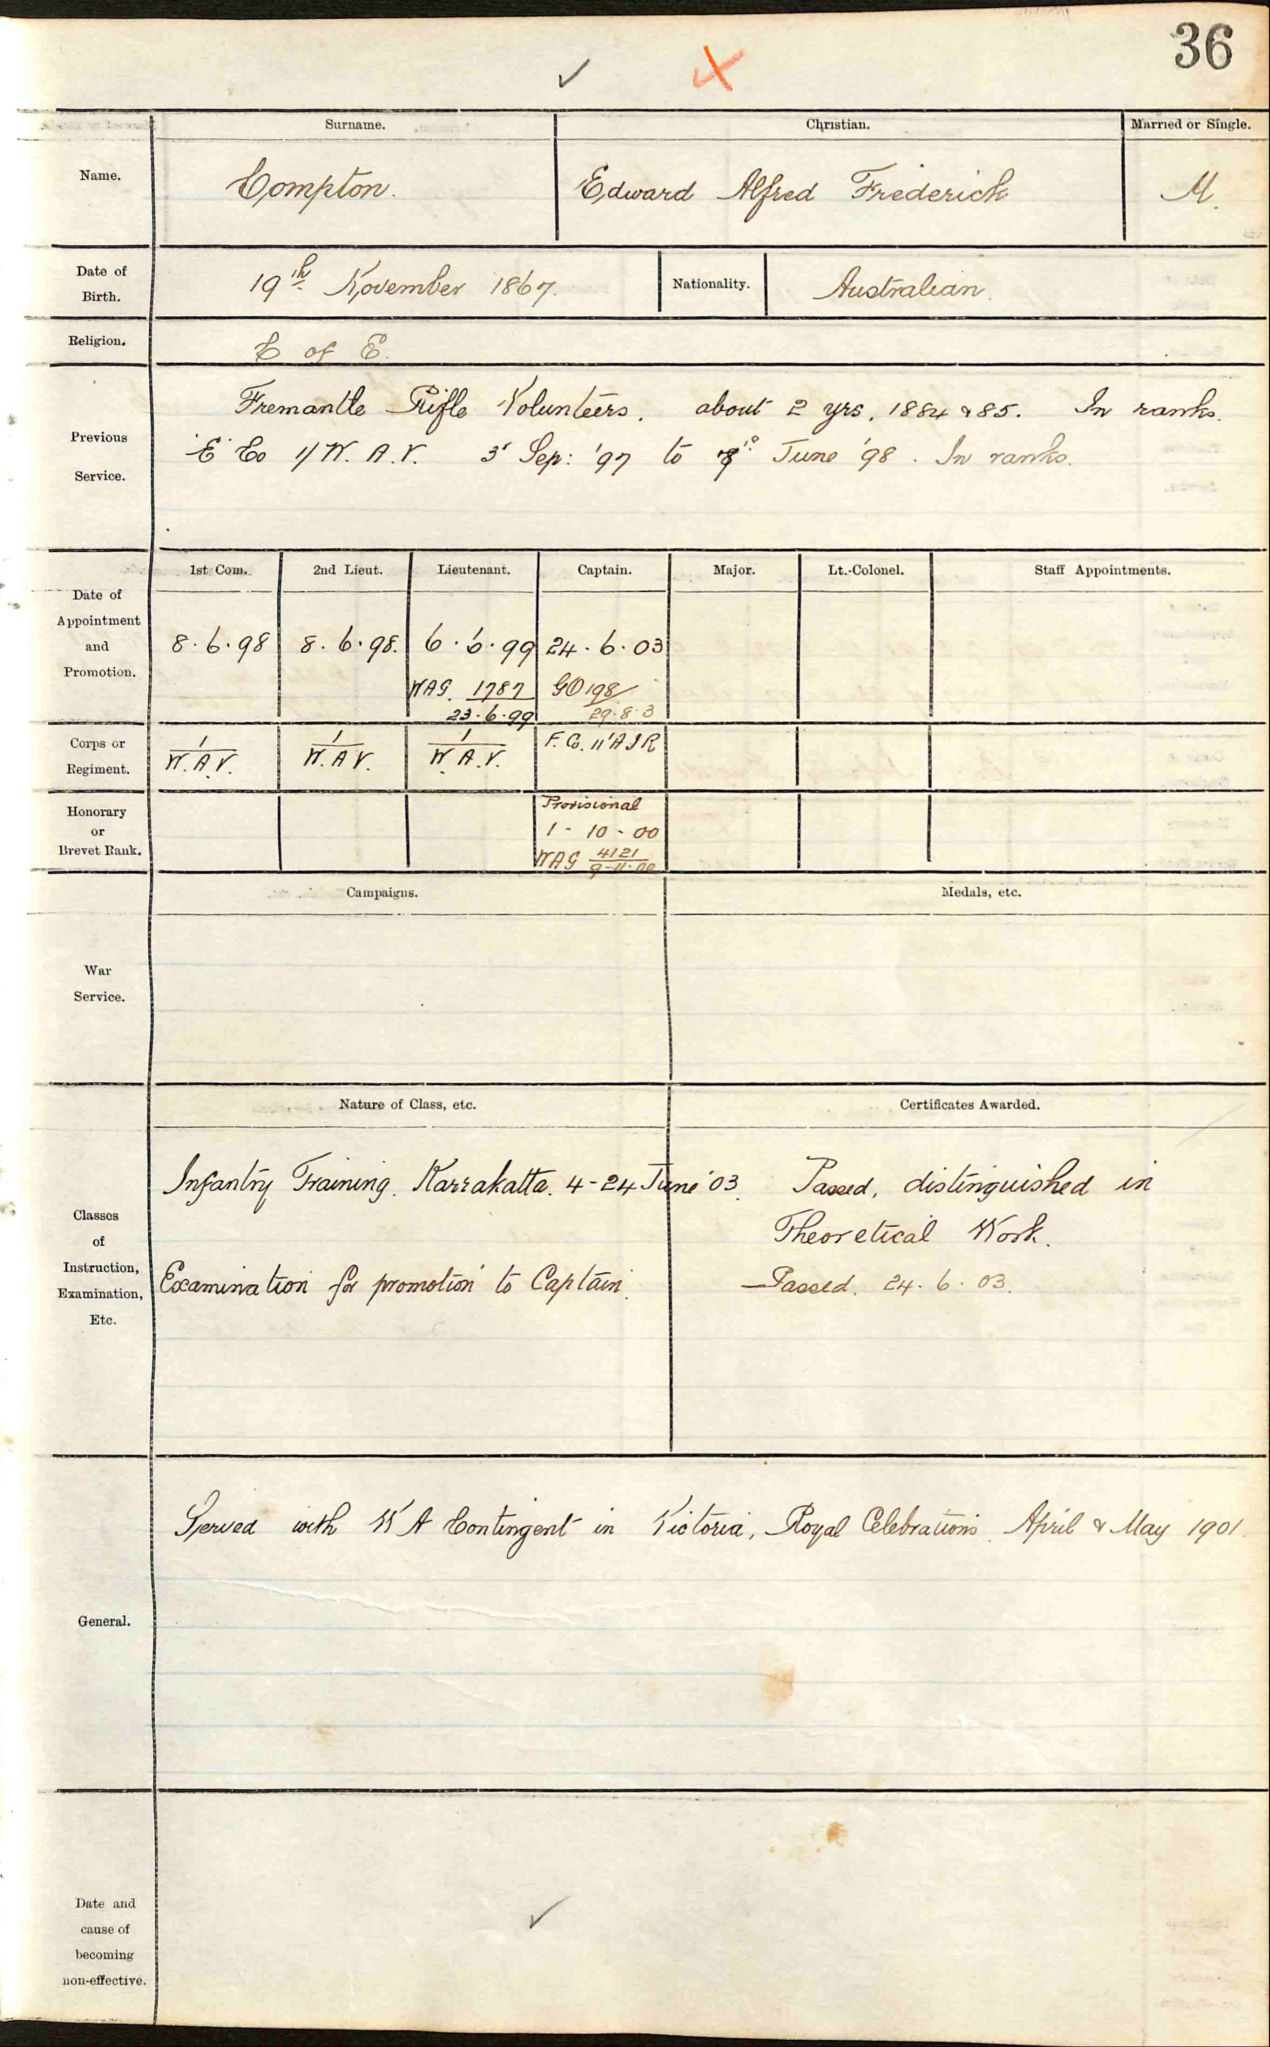 36
Surname. Christian. Married or Single.
Name. Compton. Edward Alfred Frederick M.
Date of Birth. 19th November 1867. Nationality. Australian.
Religion. C of E.
Previous Service.
Fremantle Rifle Volunteers. about 2 yrs. 1884 & 85. In ranks.
'E' Co 1/W.A.V. 3' Sep: '97 to June '98. In ranks.
Date of Appointment and Promotion.
1st Com. 2nd Lieut. Lieutenant. Captain. Major. Lt.-Colonel. Staff Appointments.
8.6.98 8.6.98. 6.6.99 24.6.03
WAG. 1787 GO 198
23.6.99 29.8.3
Corps or Regiment.
1 1 1 F. Co. 11' A I R
W.A.V. W.A.V. W.A.V.
Honorary or Brevet Rank.
Provisional
1-10-00
WAG 4121
9-11-00
War Service.
Campaigns. Medals, etc.
Classes of Instruction, Examination, Etc.
Nature of Class, etc. Certificates Awarded.
Infantry Training. Karrakatta. 4-24 June '03. Passed, distinguished in
Theoretical Work.
Examination for promotion to Captain. Passed. 24.6.03.
General.
Served with W A Contingent in Victoria, Royal Celebrations. April & May 1901.
Date and
cause of
becoming
non-effective.